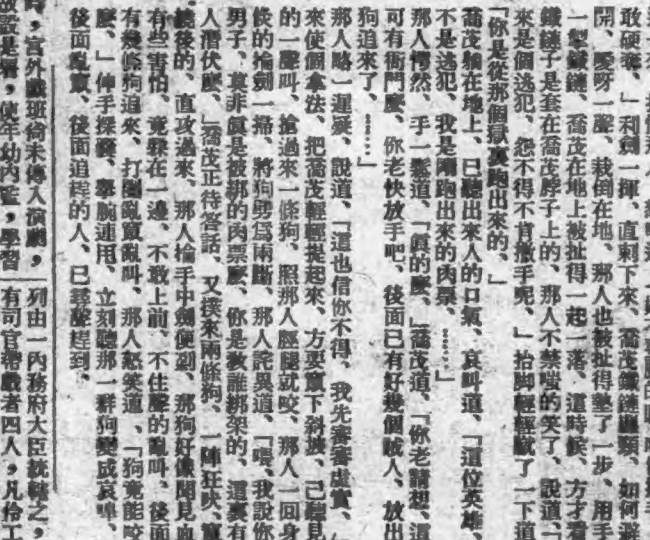 敢硬奪、」利劍一揮、直剌下來、喬茂鐵鏈纏頸、如何避
開、噯呀一聲、栽倒在地、那人也被扯得墊了一步、用手
一掣鐵鏈、喬茂在地上被扯得一起一落、這時候、方才看
鐵鏈子是套在喬茂脖子上的、那人不禁嗤的笑了、說道、「
來是個逃犯、怨不得不肯撒手呢、」抬脚輕輕蹴了一下道
「你是從那個獄裏跑出來的、」
喬茂躺在地上、已聽出來人的口氣、哀叫道、「這位英雄、
不是逃犯、我是剛跑出來的肉票、……」
那人愕然、手一鬆道、「眞的麼、」喬茂道、「你老請想、這
可有衙門麼、你老快放手吧、後面已有好幾個賊人、放出
狗追來了、……」
那人略一遲疑、說道、「這也信你不得、我先審審虛實、」
來使個拿法、把喬茂輕輕提起來、方要竄下斜坡、已聽見
的一聲叫、搶過來一條狗、照那人脛腿就咬、那人一回身
倐的掄劍一掃、將狗剪爲兩斷、那人詫異道、「喂、我說你
男子、莫非眞是被綁的肉票麼、你是教誰綁架的、這裏有
人潛伏麼、」喬茂正待答話、又撲來兩條狗、一陣狂吠、竄
繞後的、直攻過來、那人掄手中劍便剁、那狗好像聞見血
有些害怕、竟躲在一邊、不敢上前、不住聲的亂叫、後面
有幾條狗追來、打圈亂竄亂叫、那人怒笑道、「狗竟能咬
麼、」伸手探囊、舉腕連甩、立刻聽那一群狗變成哀嘷、
後面亂竄、後面追趕的人、已尋聲趕到、
時，宮外戲班尙未傳入演戲，
故設是署，使年幼內監，學習
列由一內務府大臣統轄之，
有司官帶戲者四人，凡伶工